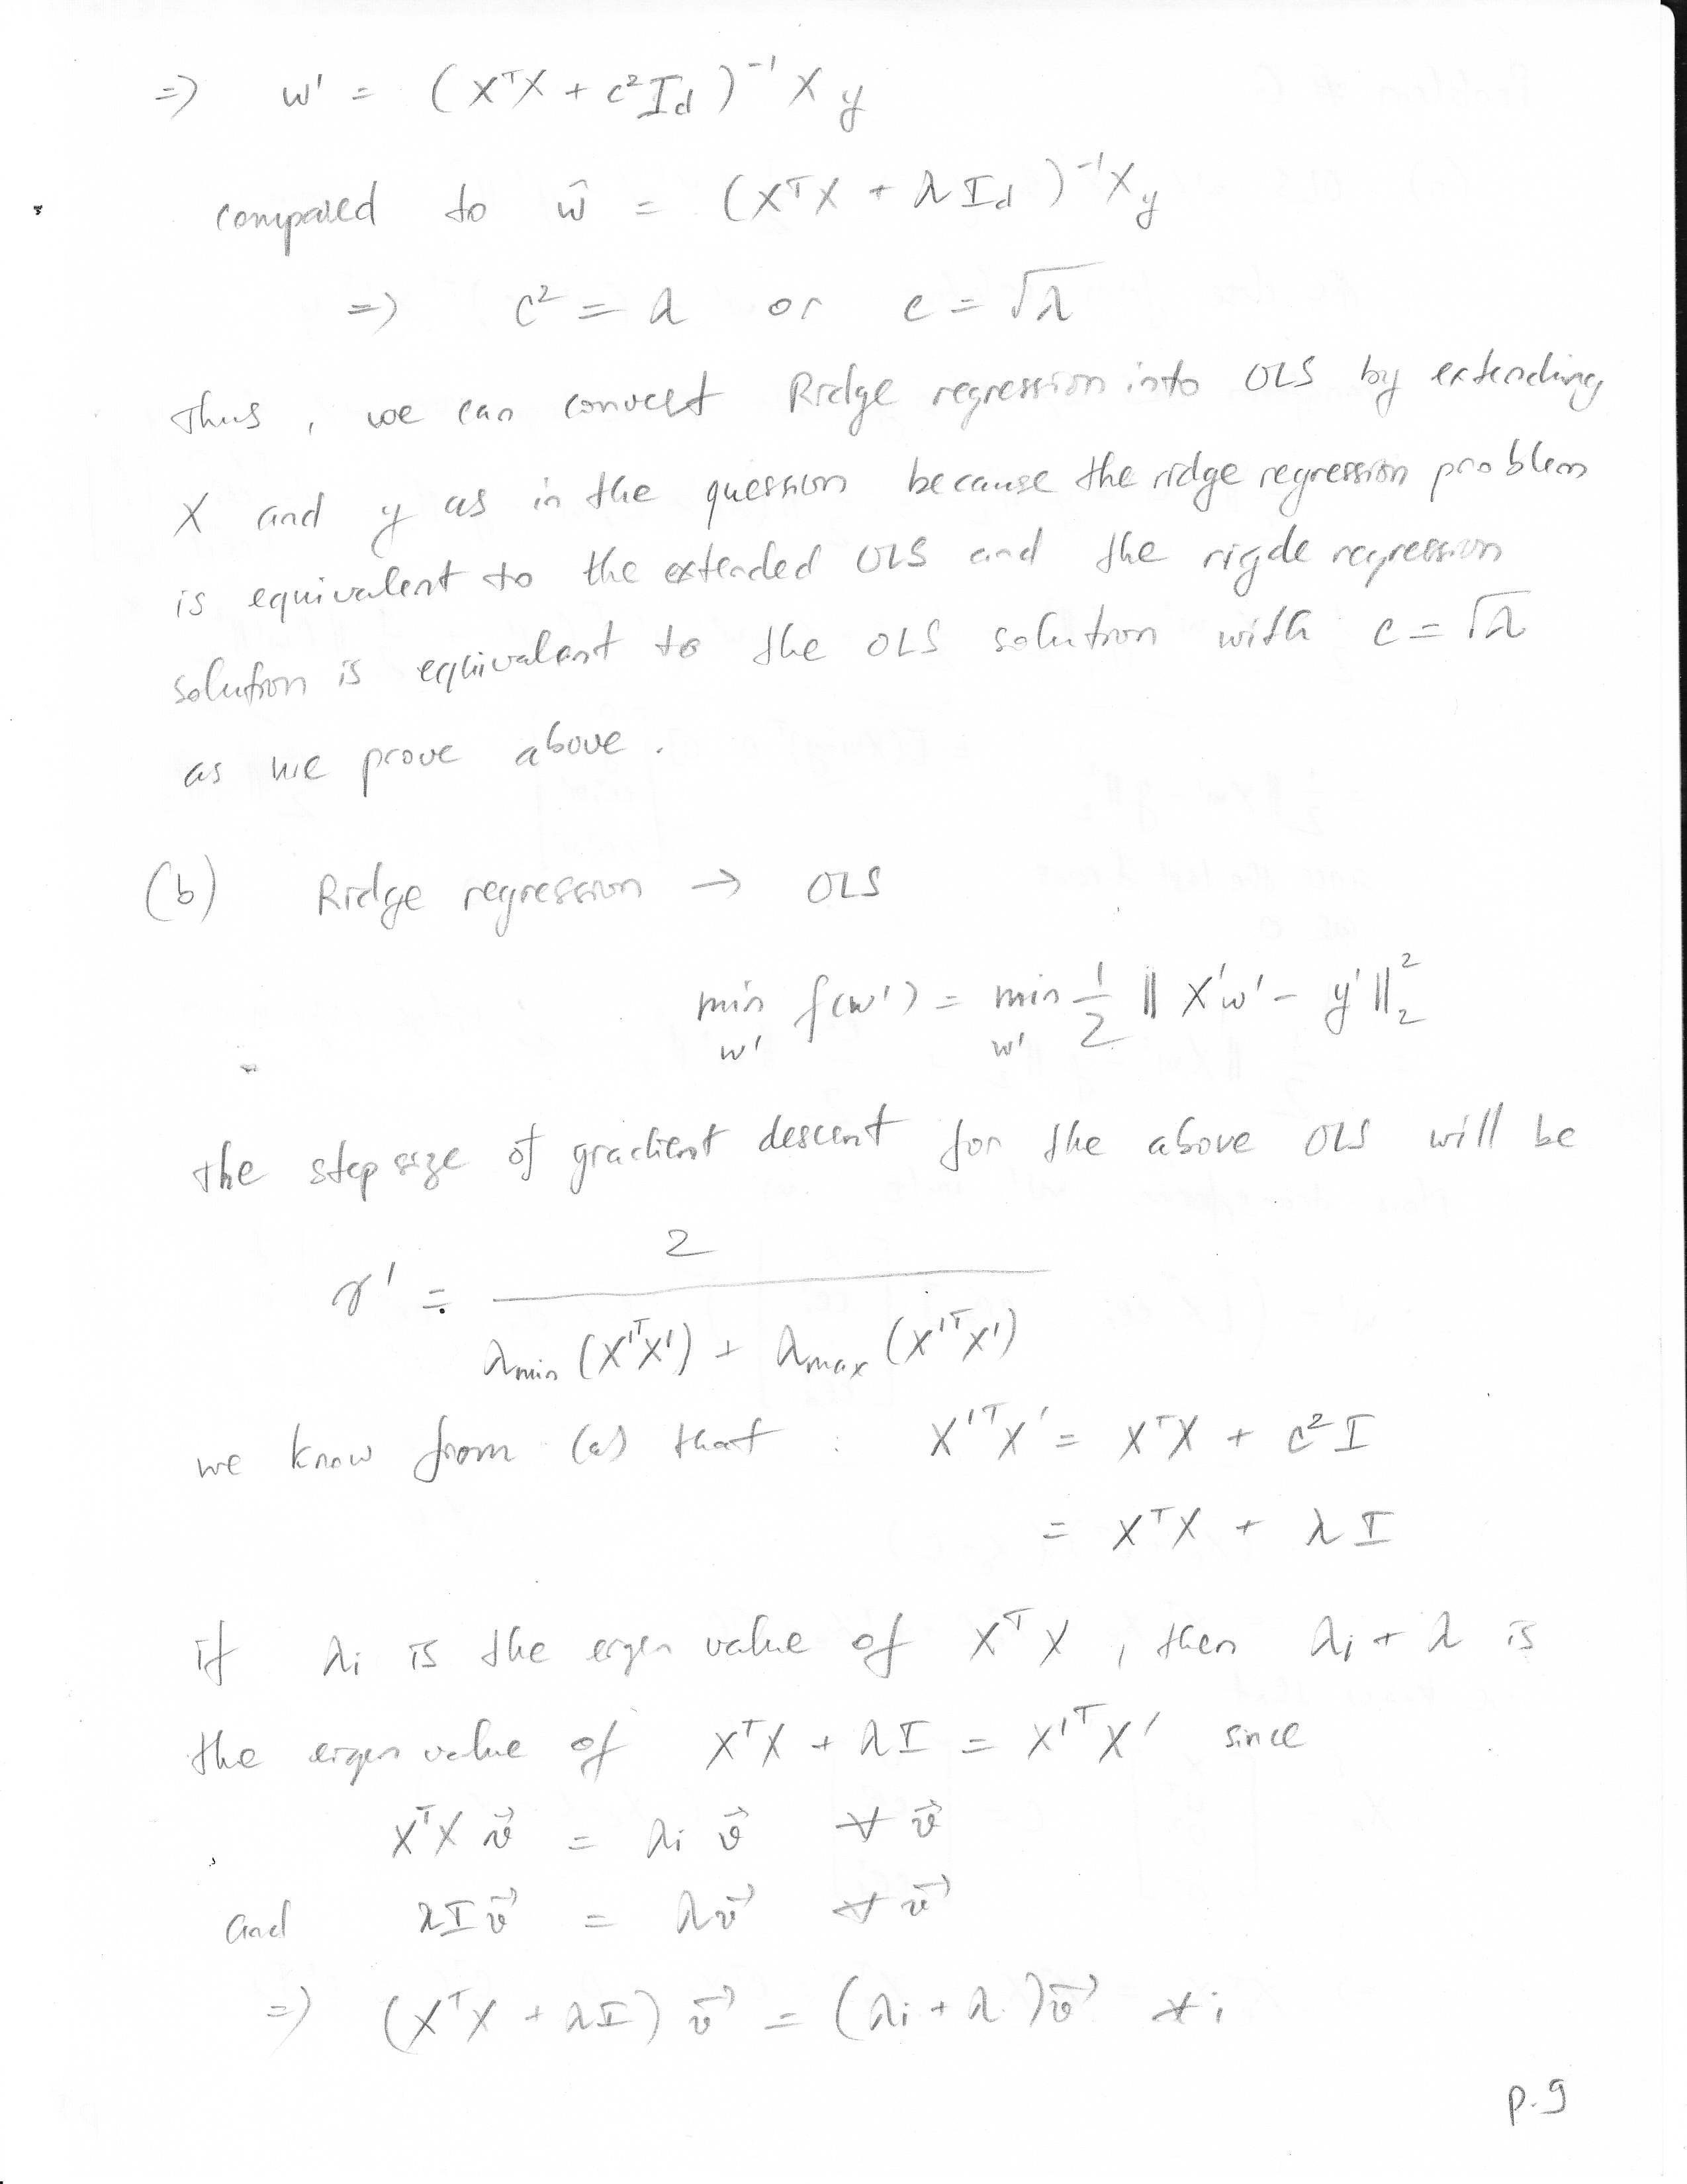 => w' = (XᵀX + c²I_d)⁻¹ X y
compared to ŵ = (XᵀX + λ I_d)⁻¹ X y
=> c² = λ or c = √λ
Thus, we can convert Ridge regression into OLS by extending
X and y as in the quession because the ridge regression problem
is equivalent to the extended OLS and the rigde regression
solution is equivalent to the OLS solution with c = √λ
as we prove above.
(b) Ridge regression → OLS
min_{w'} f(w') = min_{w'} 1/2 ‖ X'w' - y' ‖₂²
The step size of gradient descent for the above OLS will be
γ' = 2 / (λmin (X'ᵀX') + λmax (X'ᵀX'))
we know from (a) that : X'ᵀX' = XᵀX + c² I
= XᵀX + λ I
if λi is the eigen value of XᵀX, then λi + λ is
the eigen value of XᵀX + λI = X'ᵀX' since
XᵀX v⃗ = λi v⃗ ∀ v⃗
and λI v⃗ = λv⃗ ∀ v⃗
=> (XᵀX + λI) v⃗ = (λi + λ) v⃗ ∀ i
p.9